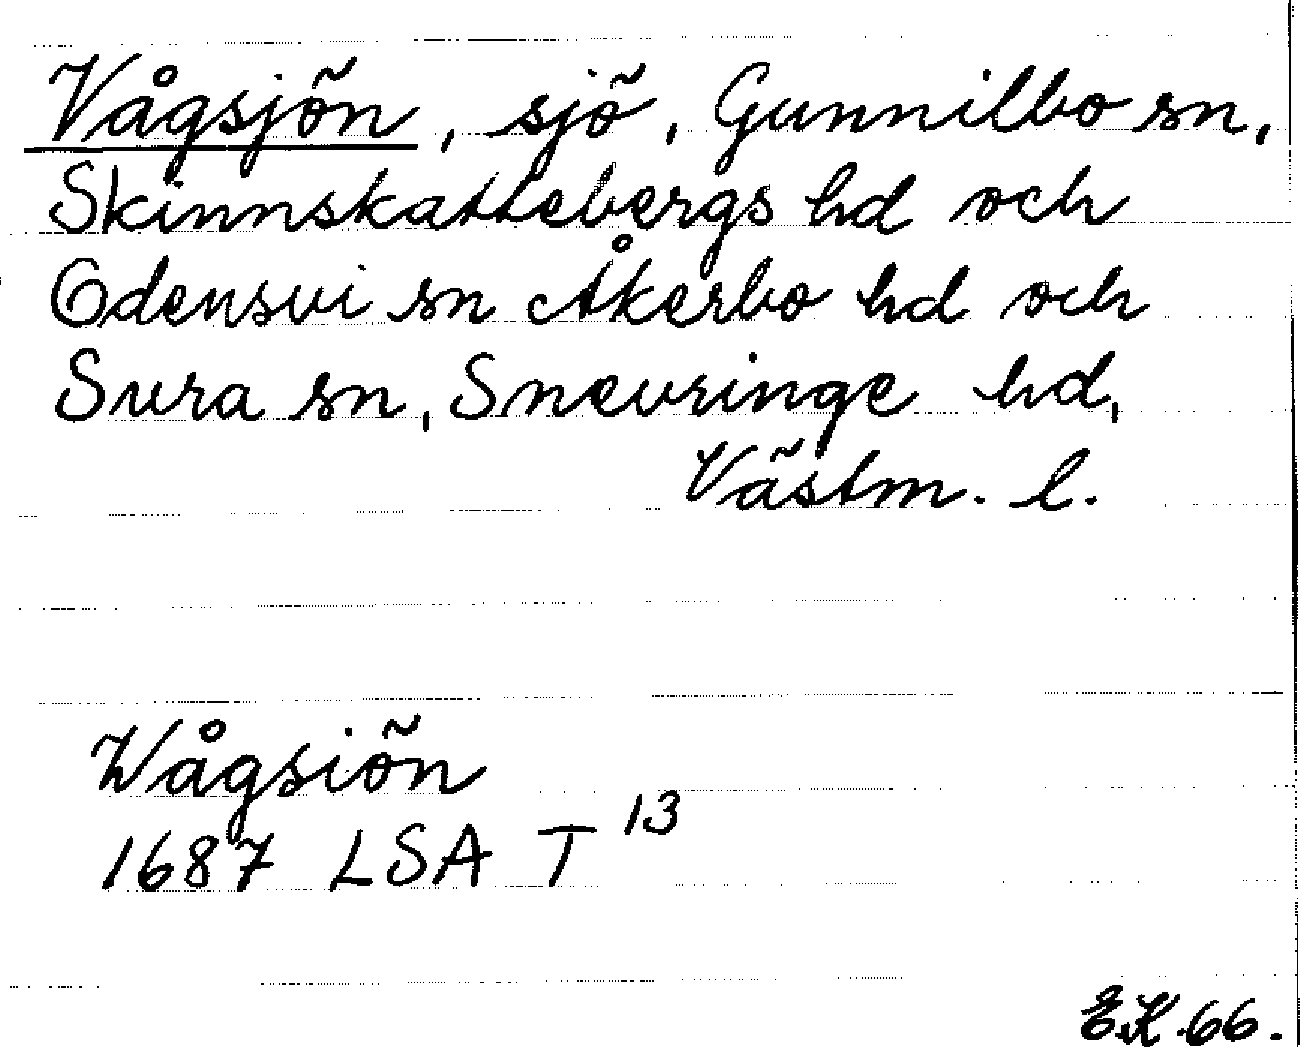 Vågsjön, sjö, Gunnilbo sn,
Skinnskattebergs hd och
Odensvi sn Åkerbo hd och
Sura sn, Snevringe hd,
Västm. l.
Wågsiön
1687 LSA T 13
E.K. 66.